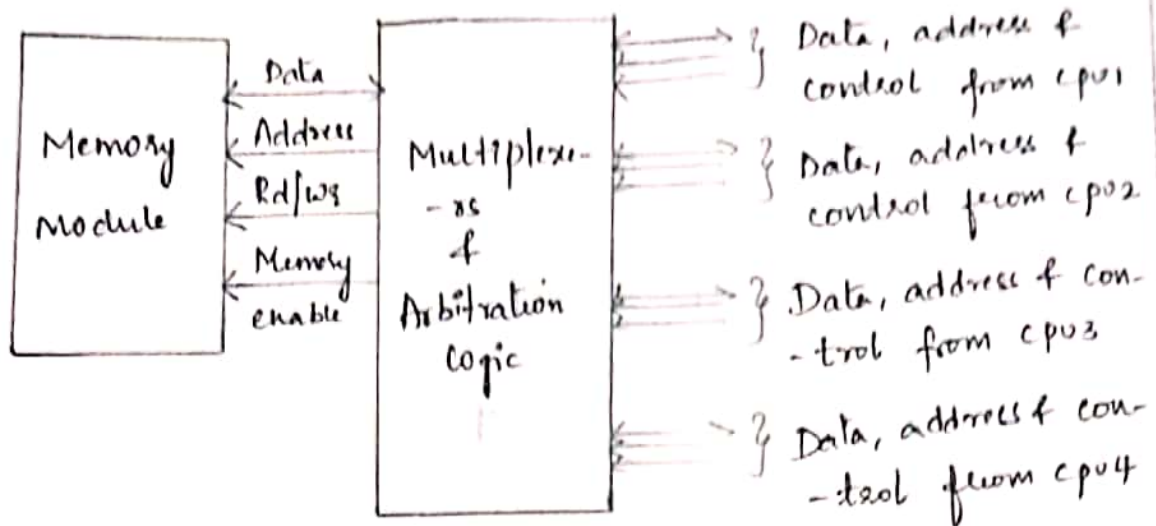 Memory
Module
Data
Address
Rd/wr
Memory
enable
Multiplexe-
-rs
&
Arbitration
Logic
} Data, address &
control from cpu1
} Data, address &
control from cpu2
} Data, address & con-
-trol from cpu3
} Data, address & con-
-trol from cpu4